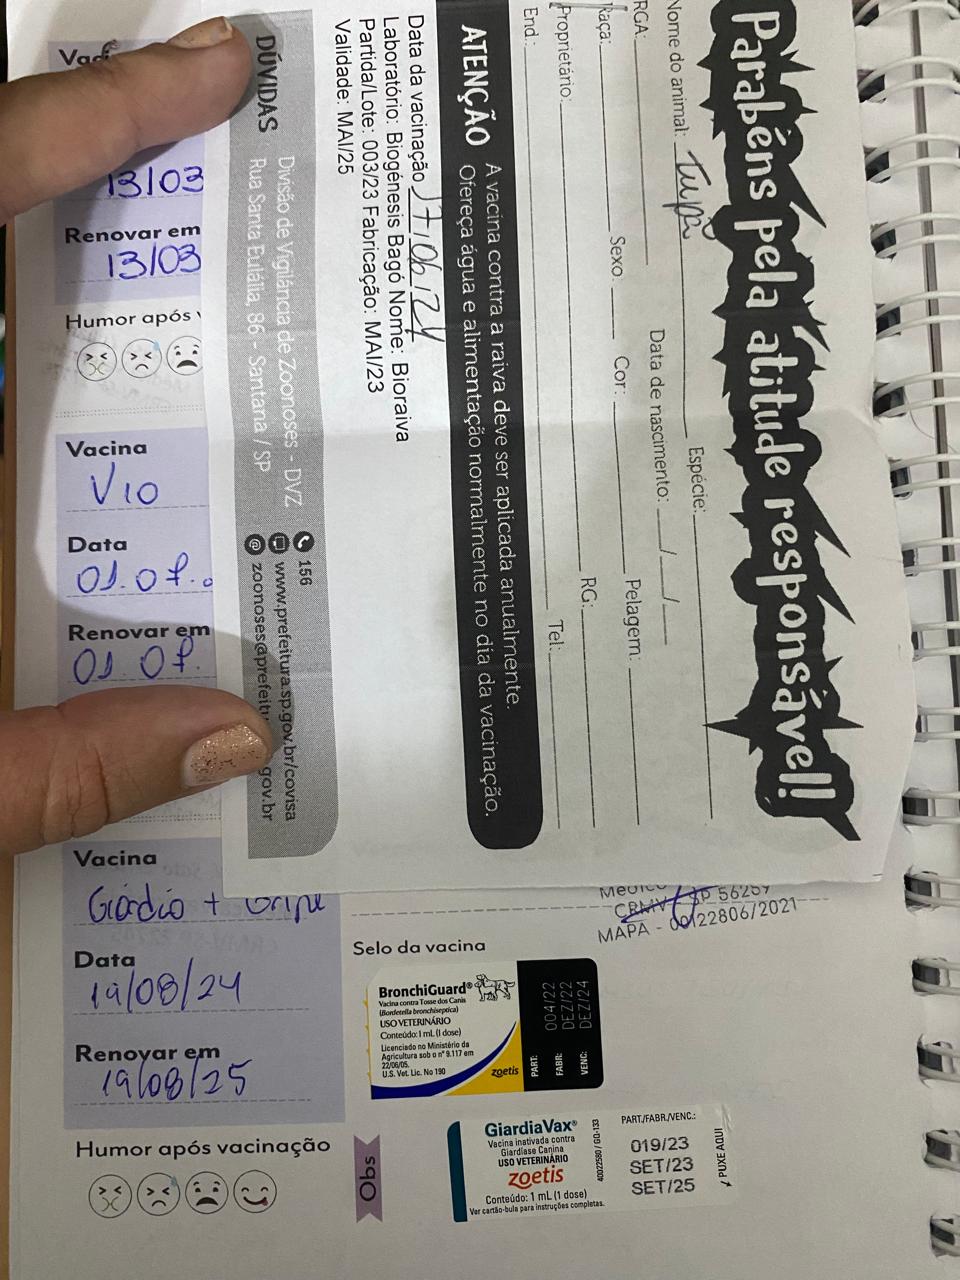 Parabéns pela atitude responsável!
Nome do animal: Tupã Espécie:
RGA: Data de nascimento: / /
Raça: Sexo: Cor: Pelagem:
Proprietário: RG:
End.: Tel:
ATENÇÃO
A vacina contra a raiva deve ser aplicada anualmente.
Ofereça água e alimentação normalmente no dia da vacinação.
Data da vacinação 17/06/24
Laboratório: Biogénesis Bagó Nome: Bioraiva
Partida/Lote: 003/23 Fabricação: MAI/23
Validade: MAI/25
DÚVIDAS
Divisão de Vigilância de Zoonoses - DVZ
Rua Santa Eulália, 86 - Santana / SP
156
www.prefeitura.sp.gov.br/covisa
13/03
Renovar em
13/03
Humor após
Vacina
V10
Data
01.07.
Renovar em
01.07.
Vacina
Giárdia + Gripe
Data
19/08/24
Renovar em
19/08/25
Humor após vacinação
SP 56269
MAPA - 0022806/2021
Selo da vacina
BronchiGuard®
Vacina contra Tosse dos Canis
(Bordetella bronchiseptica)
USO VETERINÁRIO
Conteúdo: 1 mL (1 dose)
Licenciado no Ministério da
Agricultura sob o nº 9.117 em
22/06/05.
U.S. Vet. Lic. No 190
zoetis
PART: 004/22
FABR: DEZ/22
VENC: DEZ/24
Obs
GiardiaVax®
Vacina inativada contra
Giardíase Canina
USO VETERINÁRIO
zoetis
Conteúdo: 1 mL (1 dose)
Ver cartão-bula para instruções completas.
PART./FABR./VENC.:
019/23
SET/23
SET/25
PUXE AQUI